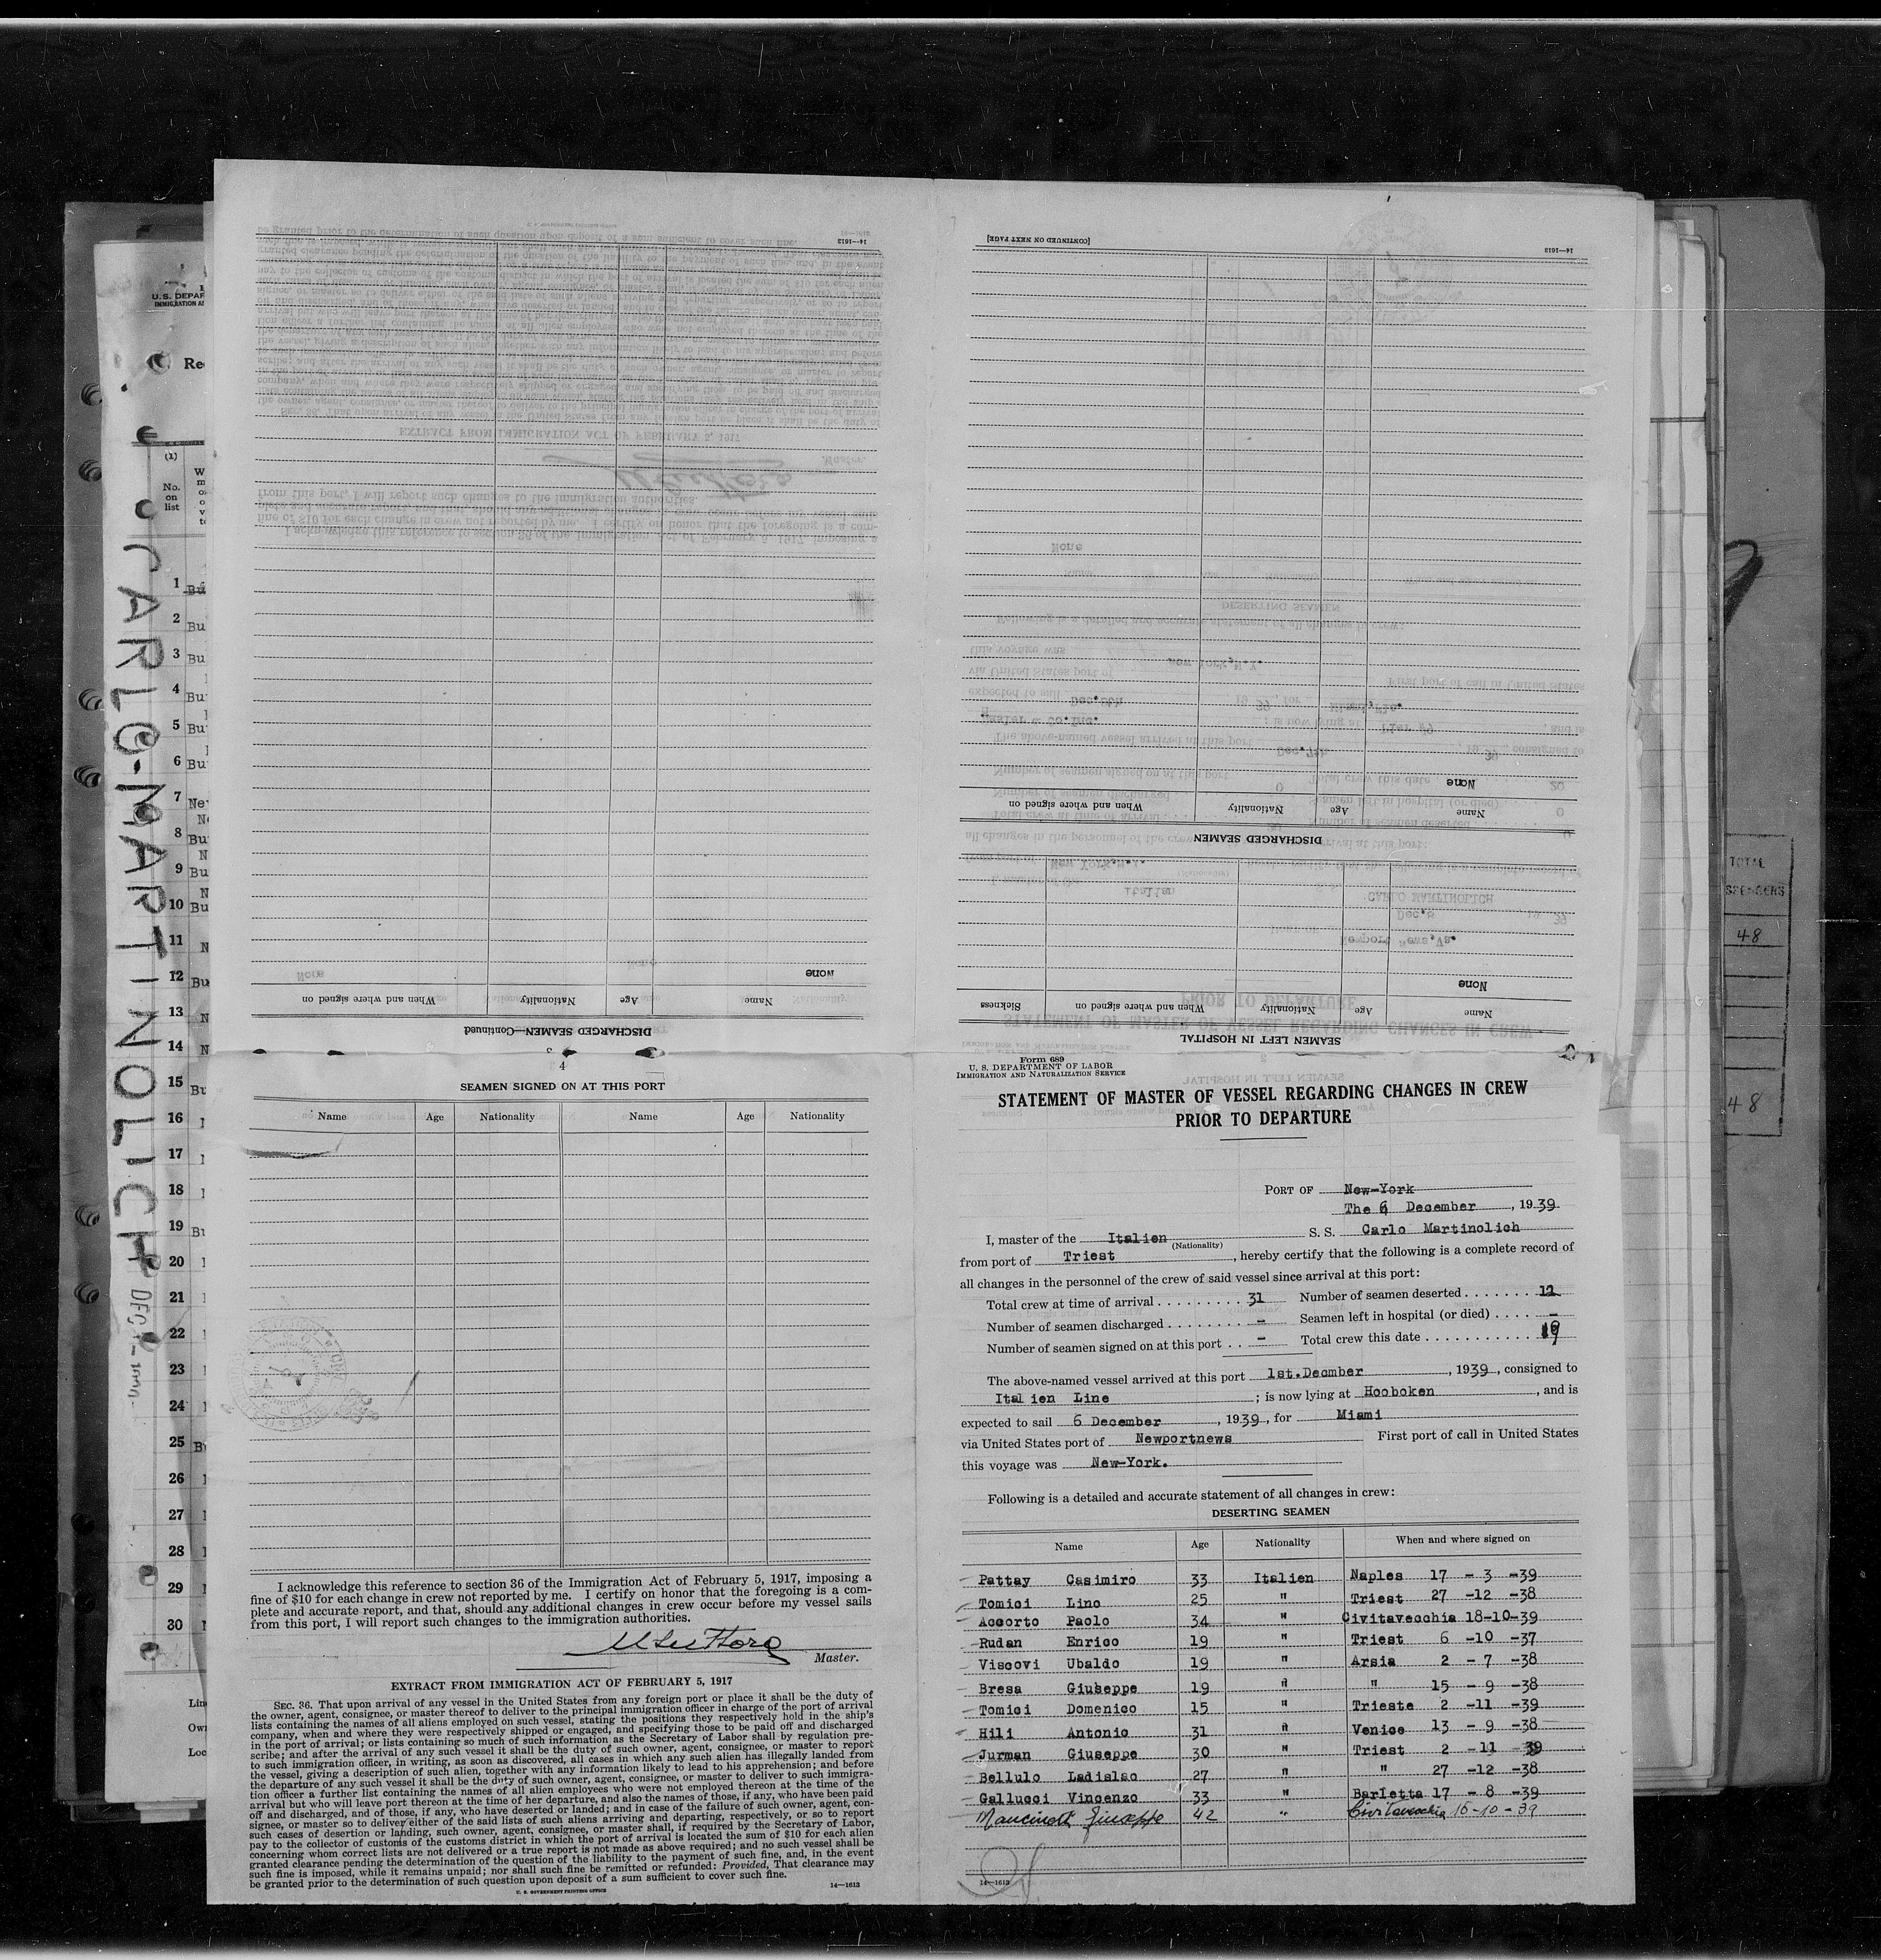 CARLO-MARTINOLICH
U.S. DEPAR
Re
(1)
No.
on
list
1
2
3
4
5
6
7
8
9
10
11
12
13
14
15
16
17
18
19
20
21
22
23
24
25
26
27
28
29
30
TOTAL
48
48
[CONTINUED ON NEXT PAGE]
14—1613
None
Name Age Nationality When and where signed on
DISCHARGED SEAMEN
None
Name Age Nationality When and where signed on Sickness
SEAMEN LEFT IN HOSPITAL
14—1613
None
Name Age Nationality When and where signed on
DISCHARGED SEAMEN—Continued
3
4
SEAMEN SIGNED ON AT THIS PORT
Name Age Nationality Name Age Nationality
I acknowledge this reference to section 36 of the Immigration Act of February 5, 1917, imposing a
fine of $10 for each change in crew not reported by me. I certify on honor that the foregoing is a com-
plete and accurate report, and that, should any additional changes in crew occur before my vessel sails
from this port, I will report such changes to the immigration authorities.
Master.
EXTRACT FROM IMMIGRATION ACT OF FEBRUARY 5, 1917
SEC. 36. That upon arrival of any vessel in the United States from any foreign port or place it shall be the duty of
the owner, agent, consignee, or master thereof to deliver to the principal immigration officer in charge of the port of arrival
lists containing the names of all aliens employed on such vessel, stating the positions they respectively hold in the ship's
company, when and where they were respectively shipped or engaged, and specifying those to be paid off and discharged
in the port of arrival; or lists containing so much of such information as the Secretary of Labor shall by regulation pre-
scribe; and after the arrival of any such vessel it shall be the duty of such owner, agent, consignee, or master to report
to such immigration officer, in writing, as soon as discovered, all cases in which any such alien has illegally landed from
the vessel, giving a description of such alien, together with any information likely to lead to his apprehension; and before
the departure of any such vessel it shall be the duty of such owner, agent, consignee, or master to deliver to such immigra-
tion officer a further list containing the names of all alien employees who were not employed thereon at the time of the
arrival but who will leave port thereon at the time of her departure, and also the names of those, if any, who have been paid
off and discharged, and of those, if any, who have deserted or landed; and in case of the failure of such owner, agent, con-
signee, or master so to deliver either of the said lists of such aliens arriving and departing, respectively, or so to report
such cases of desertion or landing, such owner, agent, consignee, or master shall, if required by the Secretary of Labor,
pay to the collector of customs of the customs district in which the port of arrival is located the sum of $10 for each alien
concerning whom correct lists are not delivered or a true report is not made as above required; and no such vessel shall be
granted clearance pending the determination of the question of the liability to the payment of such fine, and, in the event
such fine is imposed, while it remains unpaid; nor shall such fine be remitted or refunded: Provided, That clearance may
be granted prior to the determination of such question upon deposit of a sum sufficient to cover such fine.
U. S. GOVERNMENT PRINTING OFFICE 14—1613
Form 689
U. S. DEPARTMENT OF LABOR
IMMIGRATION AND NATURALIZATION SERVICE
STATEMENT OF MASTER OF VESSEL REGARDING CHANGES IN CREW
PRIOR TO DEPARTURE
PORT OF New-York
The 6 December, 1939
I, master of the Italien S. S. Carlo Martinolich
(Nationality)
from port of Triest, hereby certify that the following is a complete record of
all changes in the personnel of the crew of said vessel since arrival at this port:
Total crew at time of arrival 31 Number of seamen deserted 12
Number of seamen discharged - Seamen left in hospital (or died) -
Number of seamen signed on at this port - Total crew this date 19
The above-named vessel arrived at this port 1st.Decmber, 1939, consigned to
Italien Line; is now lying at Hooboken, and is
expected to sail 6 December, 1939, for Miami
via United States port of Newportnews First port of call in United States
this voyage was New-York.
Following is a detailed and accurate statement of all changes in crew:
DESERTING SEAMEN
Name Age Nationality When and where signed on
Pattay Casimiro 33 Italien Naples 17 - 3 -39
Tomici Lino 25 " Triest 27 -12 -38
Accorto Paolo 34 " Civitavecchia 18-10-39
Rudan Enrico 19 " Triest 6 -10 -37
Viscovi Ubaldo 19 " Arsia 2 - 7 -38
Bresa Giuseppe 19 " " 15 - 9 -38
Tomici Domenico 15 " Trieste 2 -11 -39
Hili Antonio 31 " Venice 13 - 9 -38
Jurman Giuseppe 30 " Triest 2 -11 -39
Bellulo Ladislao 27 " " 27 -12 -38
Gallucci Vincenzo 33 " Barletta 17 - 8 -39
Giuseppe 42 " Civitavecchia 16-10-39
14—1613